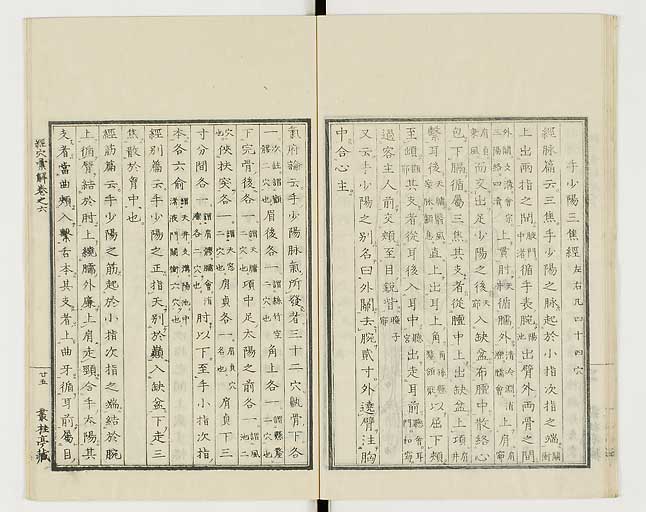 手少陽三焦經 左右凡四十四穴
經脉篇云三焦手少陽之脉起於小指次指之端 關衝
上出兩指之間 液門中渚 循手表腕 陽池 出臂外兩骨之間
外關支溝會宗三陽絡四瀆 上貫肘 循臑外 清冷淵消濼 上肩
而交出足少陽之後 入缺盆布膻中散絡心
包下膈循屬三焦其支者從膻中上出缺盆上項
繫耳後 直上出耳上角 以屈下頰
至䪼 其支者從耳後入耳中 出走耳前
過客主人前交頰至目銳眥
又云手少陽之別名曰外關去腕貳寸外遶臂注胸
中合心主
氣府論云手少陽脉氣所發者三十二穴鼽骨下各
一 次註謂顴髎二穴也 眉後各一 謂絲竹空二穴也 角上各一 謂懸釐二穴也
下完骨後各一 謂天牖二穴也 項中足太陽之前各一 謂風池二
穴也 俠扶突各一 謂天窓二穴也 肩貞各一 肩貞穴名也 肩貞下三
寸分間各一 謂肩髎臑會消濼各二穴也 肘以下至手小指次指
本各六俞 謂天井支溝陽池中渚液門關衝六穴也
經別篇云手少陽之正指天別於巔入缺盆下走三
焦散於胷中也
經筋篇云手少陽之筋起於小指次指之端結於腕
上循臂結於肘上繞臑外廉上肩走頸合手太陽其
支者當曲頰入繫舌本其支者上曲牙循耳前屬目
經穴彙解卷之六 廿五 叢桂亭藏